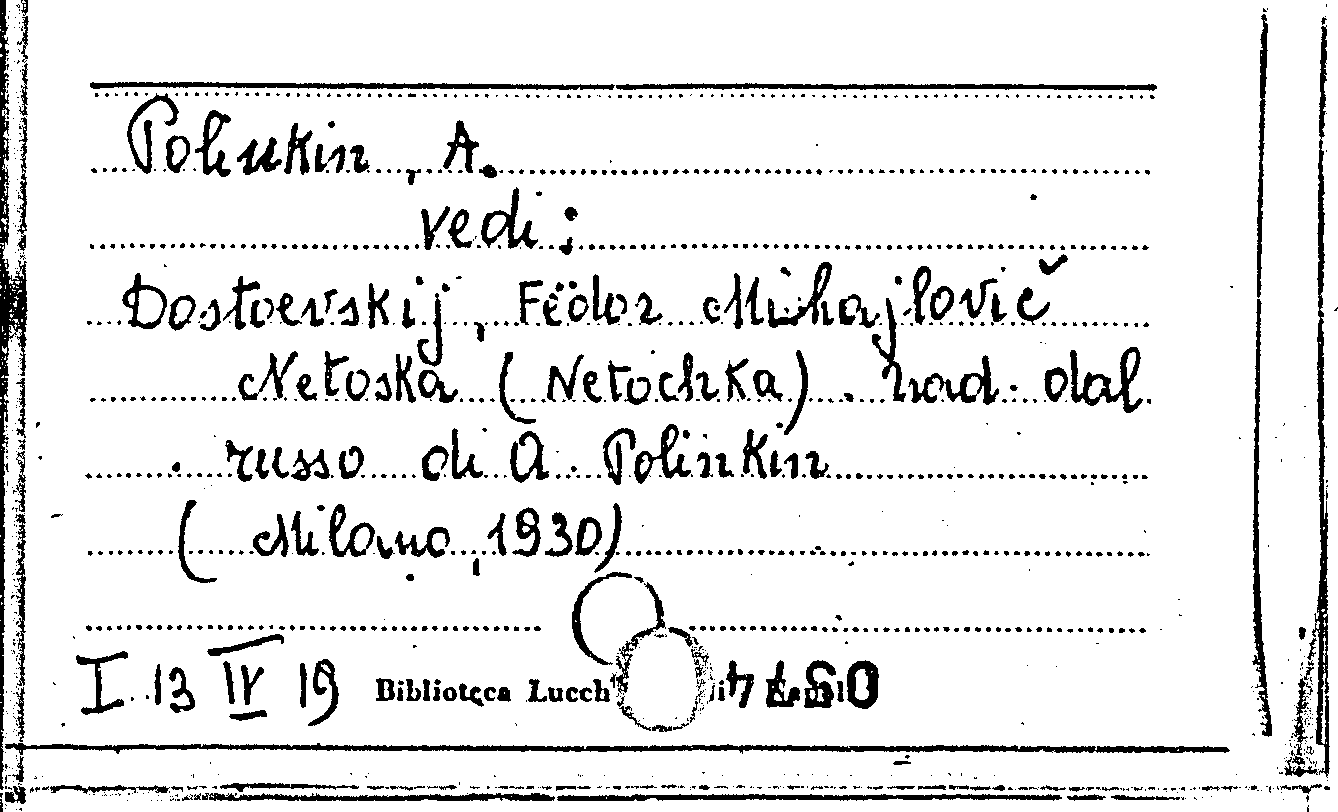 Polinkin, A.
vedi:
Dostoevskij, Fëdor Mihajlovič
Netoska (Netochka). Trad. dal
russo di A. Polinkin
(Milano, 1930)
I 13 IV 19 Biblioteca